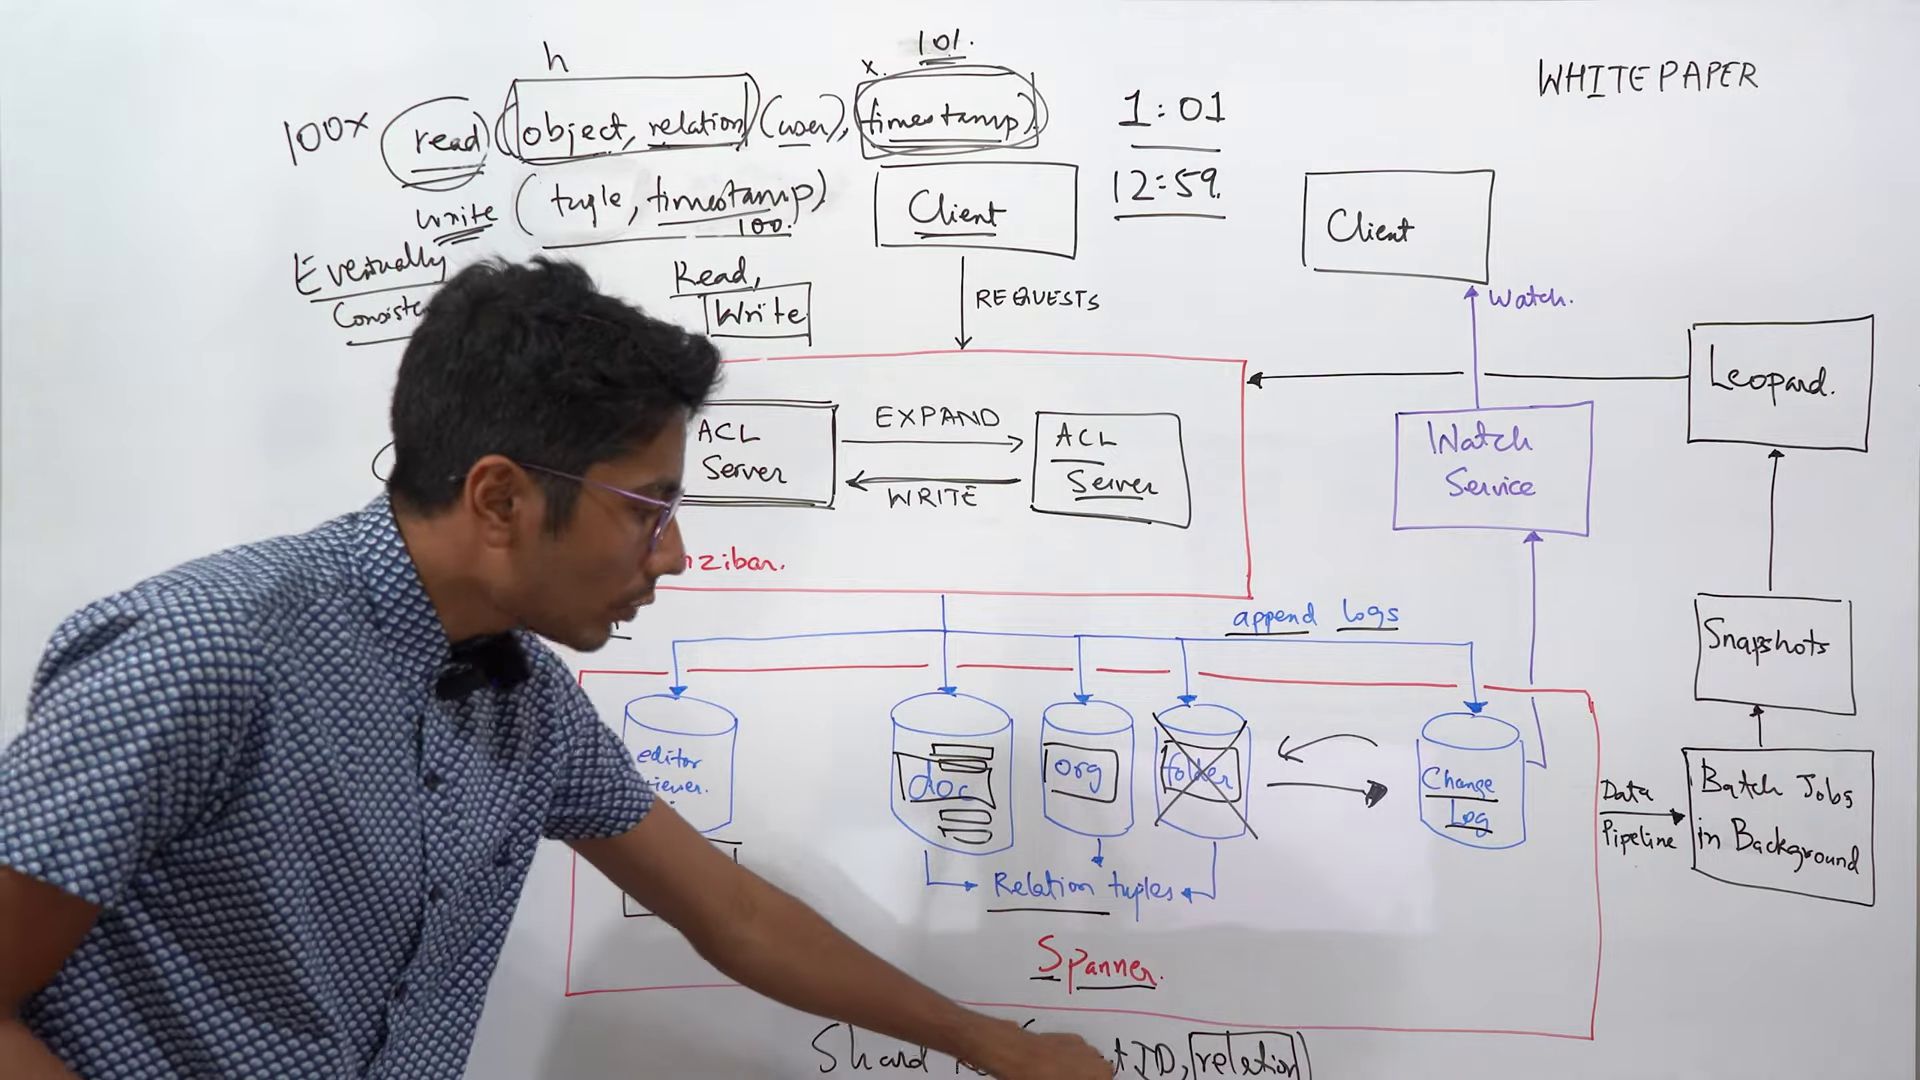 h
101.
x.
WHITEPAPER
100x read (object, relation) (user), timestamp)
1:01
write (tuple, timestamp)
100.
12:59.
Client
Client
Eventually
Read,
Write
REQUESTS
Watch.
Leopard.
ACL
Server
EXPAND
WRITE
ACL
Server
Watch
Service
nzibar.
append logs
Snapshots
editor
iewer.
doc
org
folder
Change
Log
Data
Pipeline
Batch Jobs
in Background
Relation tuples
Spanner.
Shard
ID, relation)